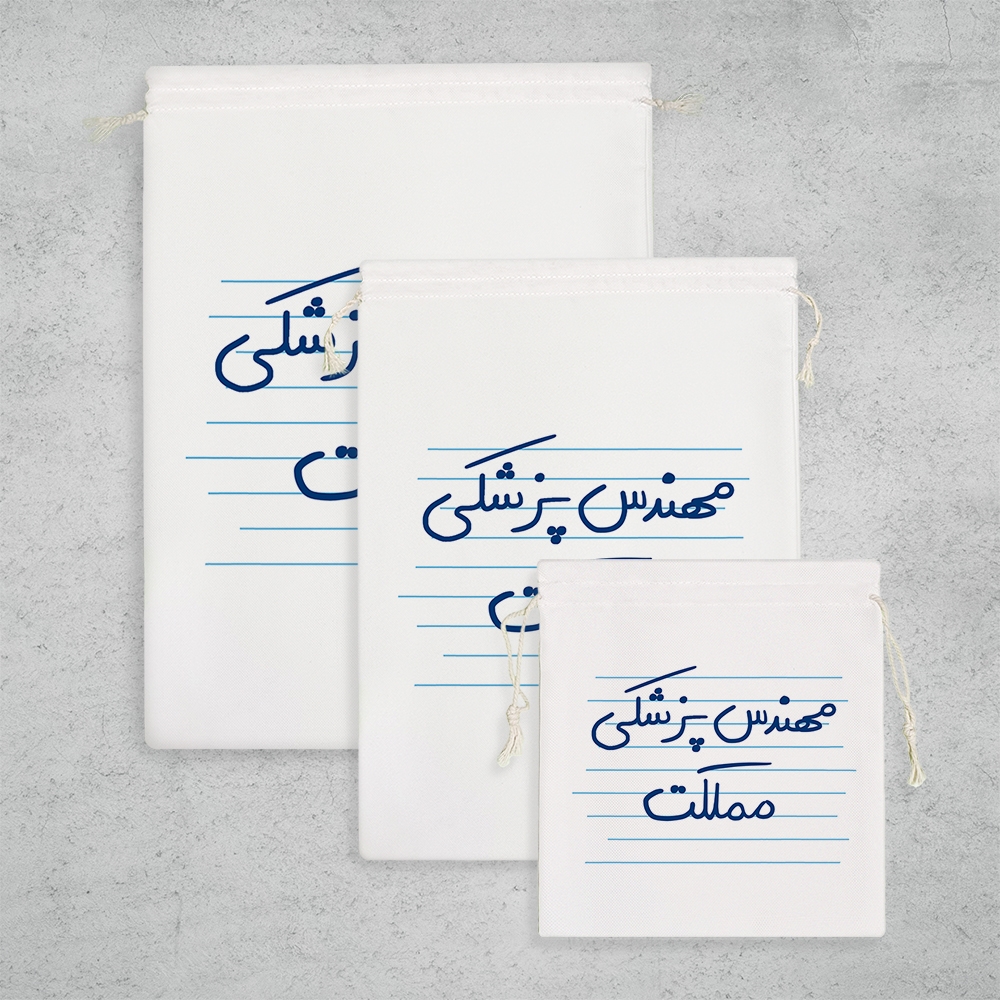 مهندس پزشکی
مهندس پزشکی
مملکت